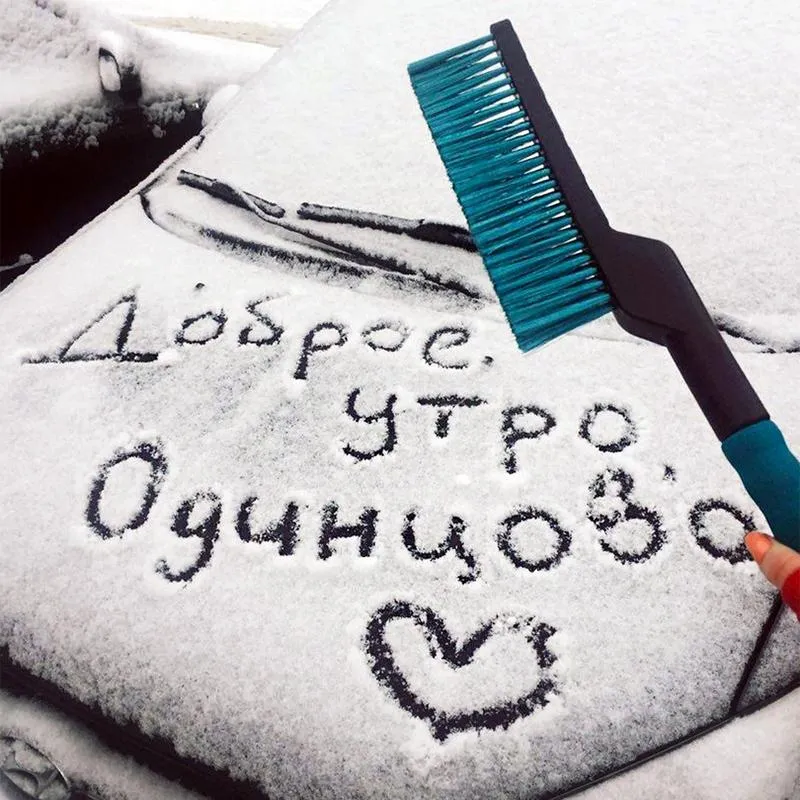 Доброе
утро
Одинцово